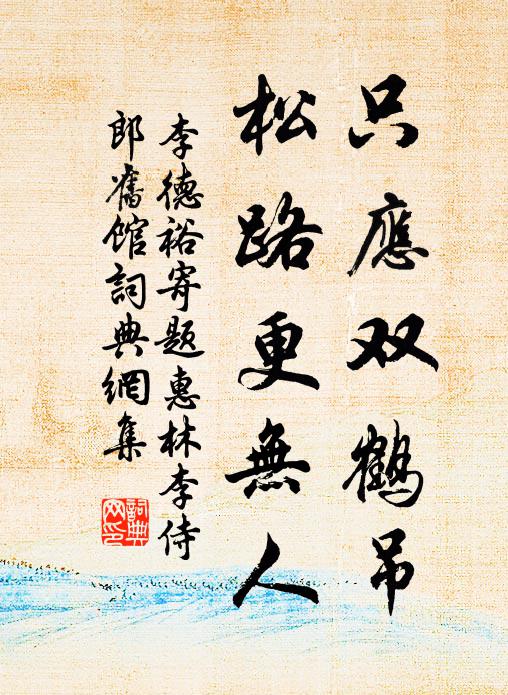 只應双鶴吊
松路更無人
李德裕寄题惠林李侍
郎舊馆詞典網集
詞典
网印